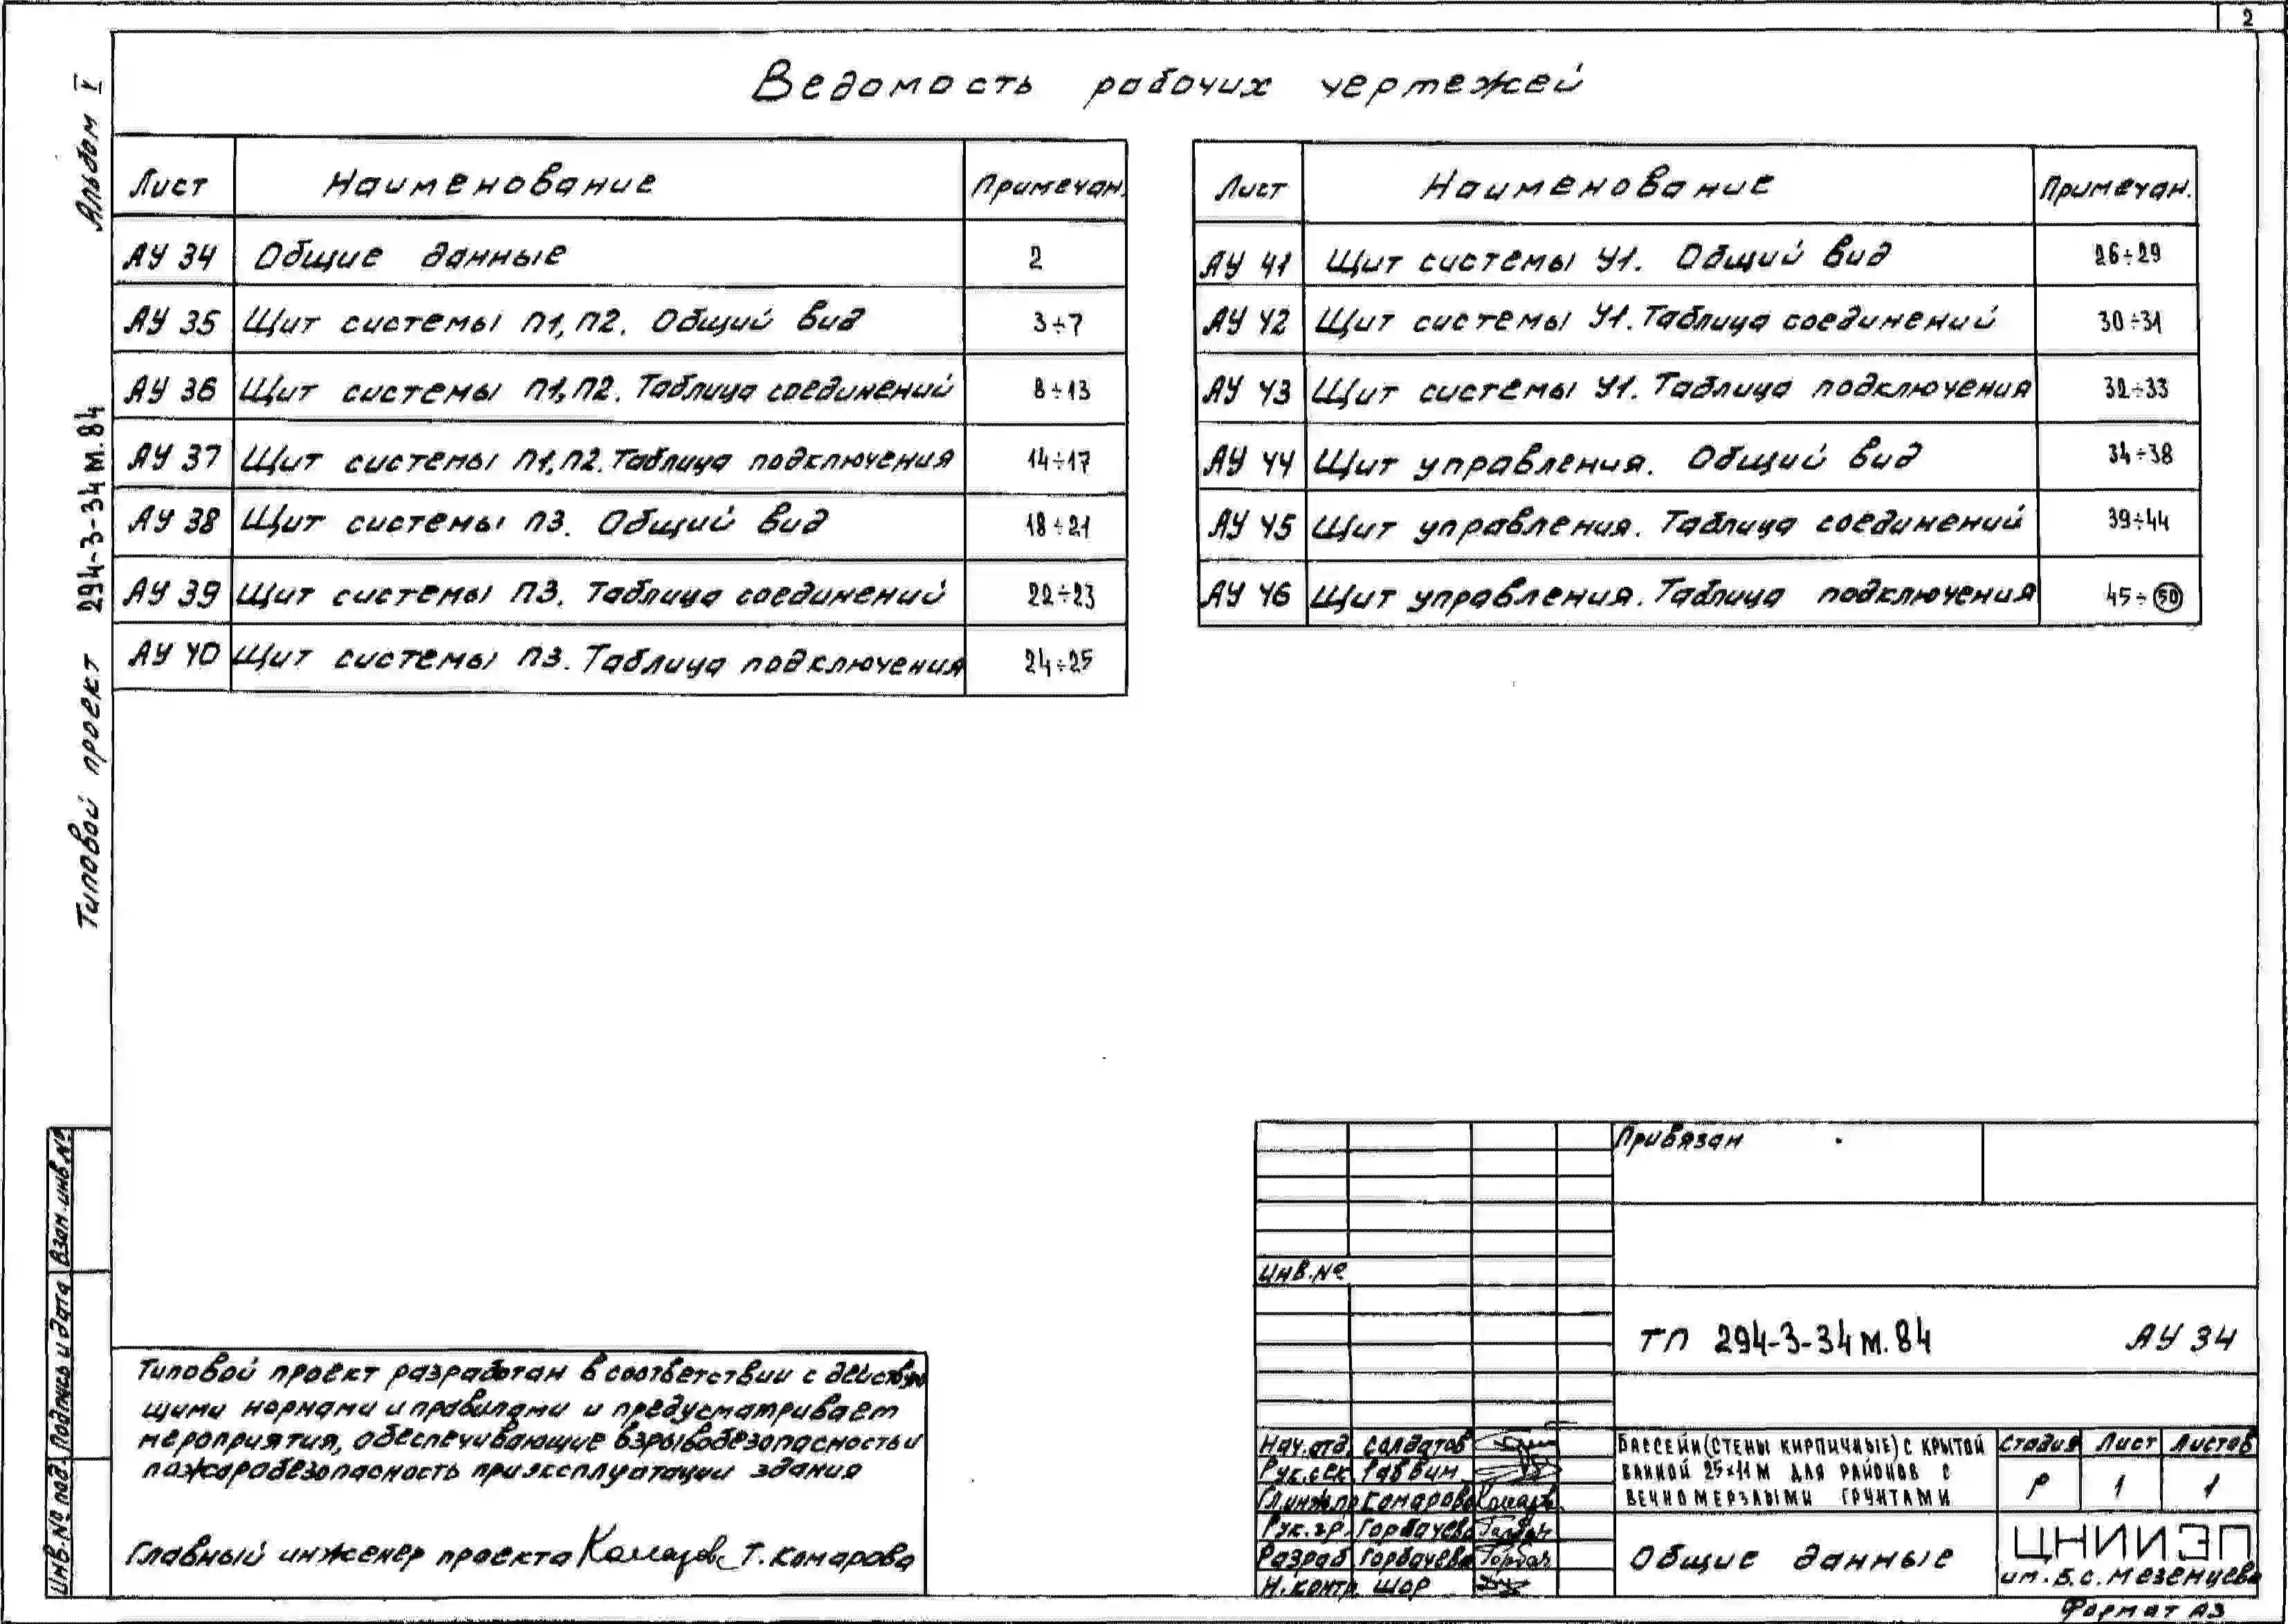 2
Альбом V
Типовой проект 294-3-34м.84
Ведомость рабочих чертежей
Лист Наименование Примечан.
АУ 34 Общие данные 2
АУ 35 Щит системы П1,П2. Общий вид 3÷7
АУ 36 Щит системы П1,П2. Таблица соединений 8÷13
АУ 37 Щит системы П1,П2. Таблица подключения 14÷17
АУ 38 Щит системы П3. Общий вид 18÷21
АУ 39 Щит системы П3. Таблица соединений 22÷23
АУ 40 Щит системы П3. Таблица подключения 24÷25
Лист Наименование Примечан.
АУ 41 Щит системы У1. Общий вид 26÷29
АУ 42 Щит системы У1. Таблица соединений 30÷31
АУ 43 Щит системы У1. Таблица подключения 32÷33
АУ 44 Щит управления. Общий вид 34÷38
АУ 45 Щит управления. Таблица соединений 39÷44
АУ 46 Щит управления. Таблица подключения 45÷50
Инв.№ под. Подпись и дата Взам.инв.№
Типовой проект разработан в соответствии с действую
щими нормами и правилами и предусматривает
мероприятия, обеспечивающие взрывобезопасность и
пожаробезопасность при эксплуатации здания
Главный инженер проекта Комарова Т. Комарова
Привязан
Инв.№
ТП 294-3-34м.84 АУ 34
Нач.отд. Солдатов
Рук.сек. Раввин
Гл.инж.пр Комарова Комаров
Рук.гр. Горбачева Горбач
Разраб Горбачева Горбач
Н.контр. Шор
Бассейн (стены кирпичные) с крытой
ванной 25×11м для районов с
вечномерзлыми грунтами
Стадия Лист Листов
Р 1 1
Общие данные
ЦНИИЭП
им. Б.С. Мезенцева
Формат А3